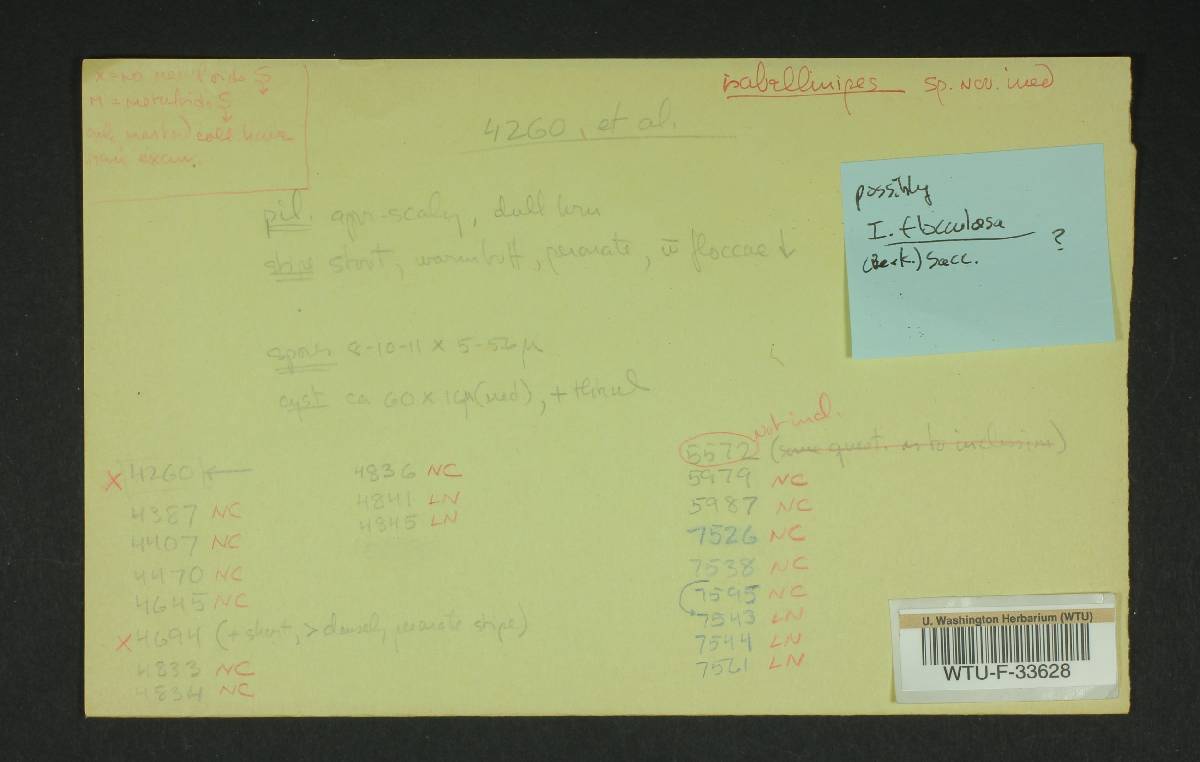 isabellinipes sp. nov. ined
4260, et al.
possibly
I. flocculosa
(Berk.) Sacc. ?
pil. appr-scaly, dull brn
stipe short, warm buff, peronate, w̄ floccae ↓
spores 8-10-11 x 5-5½ μ
cyst ca 60 x 16μ (med), + thinwl
not incl.
5572 (some quest. as to inclusion)
X 4260 ←
4387 NC
4407 NC
4470 NC
4645 NC
X 4694 (+ short, > densely peronate stipe)
4833 NC
4834 NC
4836 NC
4841 LN
4845 LN
5979 NC
5987 NC
7526 NC
7538 NC
7595 NC
7543 LN
7544 LN
7561 LN
U. Washington Herbarium (WTU)
WTU-F-33628